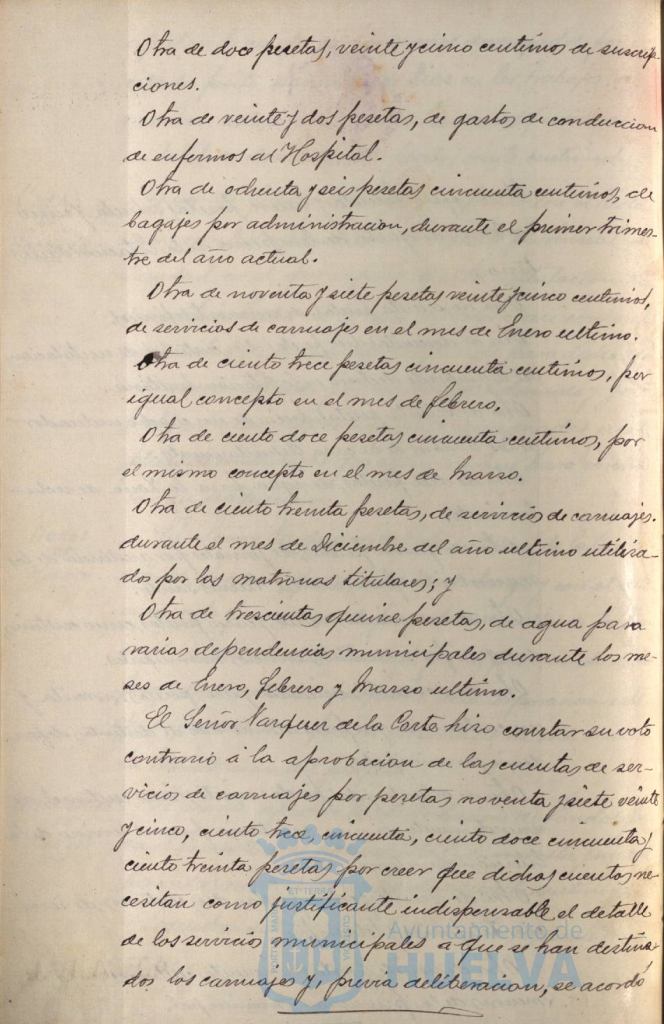 Otra de doce pesetas, veinte y cinco centimos de suscrip-
ciones.
Otra de veinte y dos pesetas, de gastos de conduccion
de enfermos al Hospital.
Otra de ochenta y seis pesetas cincuenta centimos, de
bagajes por administracion, durante el primer trimes-
tre del año actual.
Otra de noventa y siete pesetas veinte y cinco centimos,
de servicios de carruajes en el mes de Enero ultimo.
Otra de ciento trece pesetas cincuenta centimos, por
igual concepto en el mes de febrero.
Otra de ciento doce pesetas cincuenta centimos, por
el mismo concepto en el mes de Marzo.
Otra de ciento treinta pesetas, de servicios de carruajes.
durante el mes de Diciembre del año ultimo utiliza-
dos por las matronas titulares; y
Otra de trescientas quince pesetas, de agua para
varias dependencias municipales durante los me-
ses de Enero, febrero y Marzo ultimo.
El Señor Vazquez de la Corte hizo constar su voto
contrario á la aprobacion de las cuentas de ser-
vicios de carruajes por pesetas noventa y siete veinte
y cinco, ciento trece, cincuenta, ciento doce cincuenta y
ciento treinta pesetas por creer que dichas cuentas ne-
cesitan como justificante indispensable el detalle
de los servicios municipales a que se han destina-
dos los carruajes y, previa deliberacion, se acordó
Ayuntamiento de
HUELVA